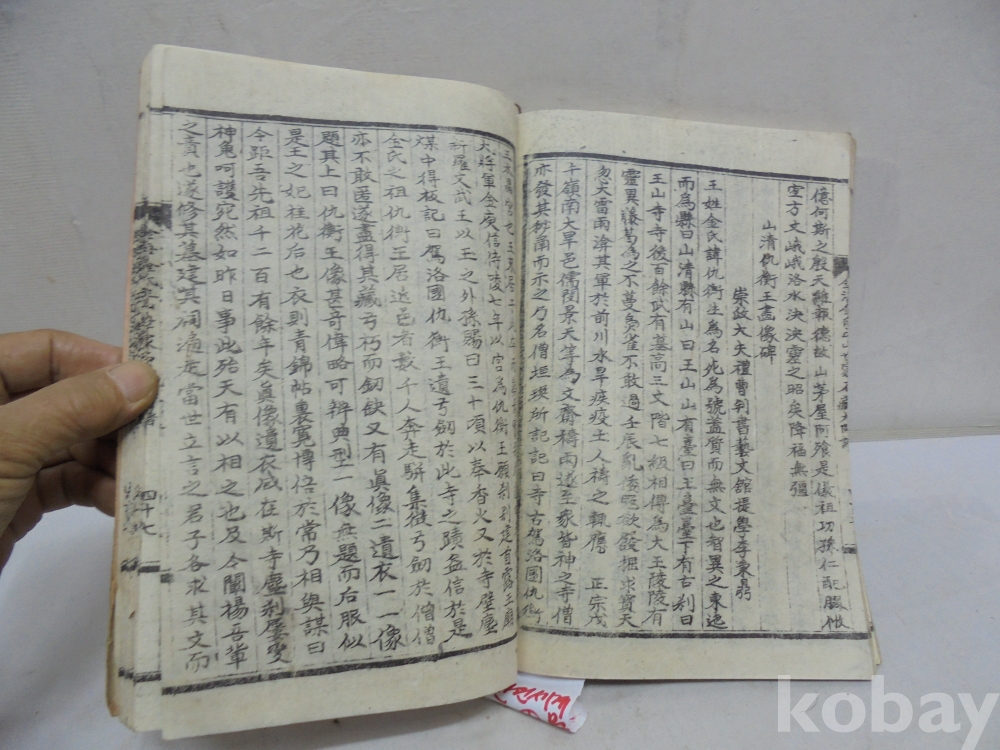 億何斯之殷天難報德故山茅屋阿飱是儀祖功孫仁配
空方丈峨峨洛水泱泱靈之昭矣降福無疆
山清仇衡王畵像碑
崇政大夫禮曹判書藝文館提學李秉鼎
王姓金氏諱仇衡生爲名死爲號蓋質而無文也智異之東迤
而爲縣曰山清縣有山曰王山山有臺曰王臺臺下有古刹曰
王山寺寺後百餘武有墓高三丈階七級相傳爲大王陵陵有
靈異藤葛爲之不蔓鳥雀不敢過壬辰亂倭怒欲發掘求寶天
忽大雷雨渰其軍於前川水旱疾疫土人禱之輒應 正宗戊
午嶺南大旱邑儒閔景天等爲文齋禱雨遂至衆皆神之寺僧
亦發其秘南而示之乃名僧坦瑛所記記曰寺古駕洛國仇衡
大將軍金庾信侍陵七年以宮爲仇衡王願刹
新羅文武王以王之外孫賜曰三十頃以奉香火又於寺壁塵
煤中得板記曰駕洛國仇衡王遺弓劒於此寺之蹟益信於是
金氏之祖仇衡王居远邑者數千人奔走騈集徵弓劒於僧僧
亦不敢匿遂盡得其藏弓朽而釰缺又有眞像二遺衣一一像
題其上曰仇衡王像甚奇偉略可辨典型一像無題而后服似
是王之妃桂花后也衣則青錦帖裏寬博倍於常乃相與謀曰
今距吾先祖千二百有餘年矣眞像遺衣咸在斯寺塵刹屢變
神龜呵護宛然如昨日事此殆天有以相之也及今闡楊吾輩
之責也遂修其墓建其祠遍走當世立言之君子各求其文而
四十七
kobay